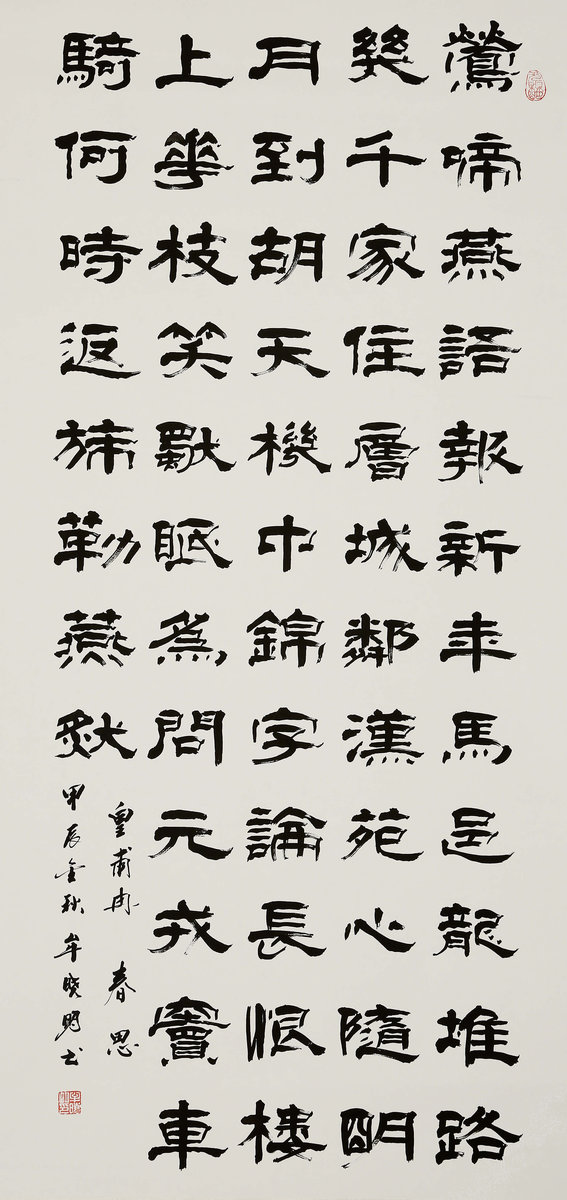 鶯啼燕語報新年馬邑龍堆路
幾千家住層城鄰漢苑心隨明
月到胡天機中錦字論長恨樓
上華枝笑獨眠為問元戎竇車
騎何時返旆勒燕然
皇甫冉 春思
甲辰金秋 牟晓明书